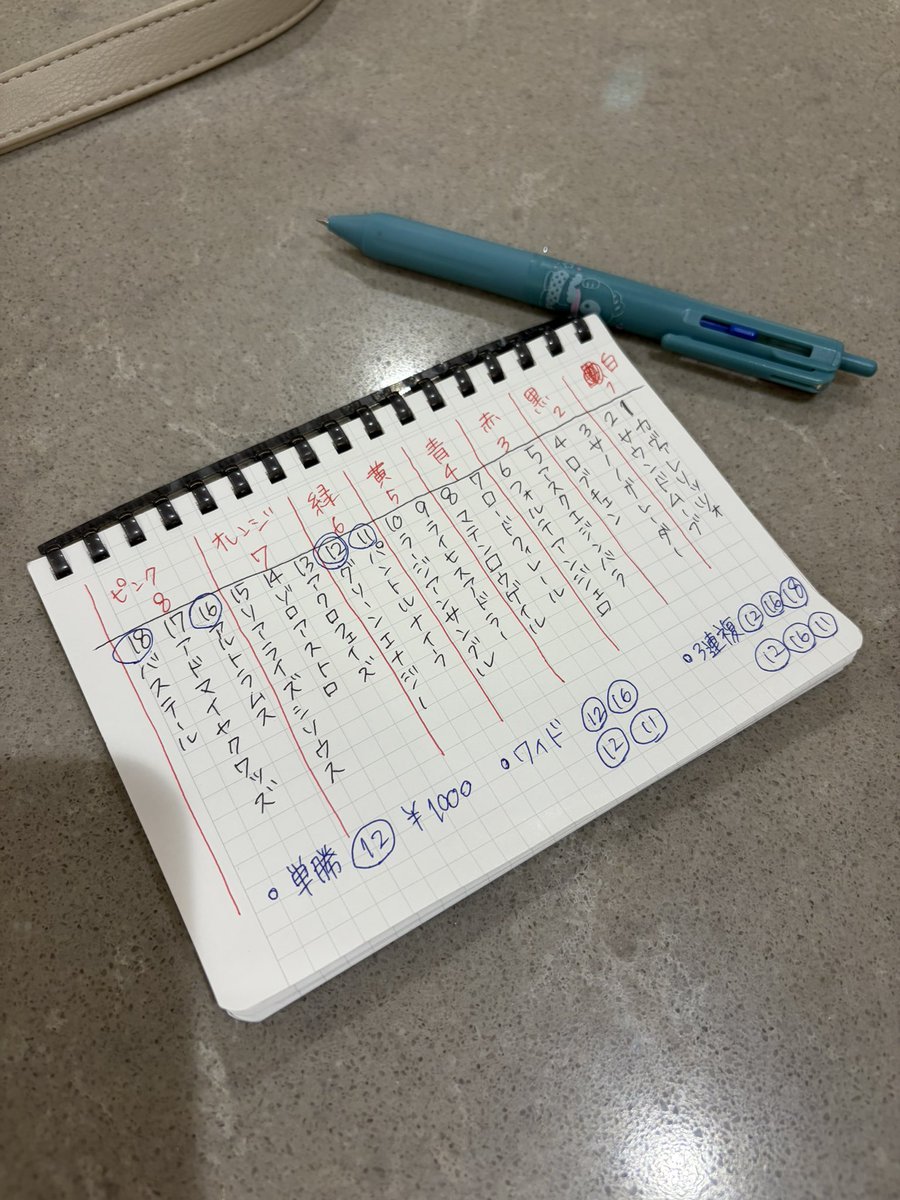 白 1
1 カヴァレリッツォ
2 サウンドムーブ
黒 2
3 サノノグレーダー
4 ロブチェン
赤 3
5 アスクエジンバラ
6 フォルテアンジェロ
青 4
7 ロードフィレール
8 マテンロウゲイル
黄 5
9 ライヒスアドラー
10 ラージアンサンブル
緑 6
11 パントルナイーフ
12 グリーンエナジー
オレンジ 7
13 アクロフェイズ
14 ゾロアストロ
15 リアライズシリウス
ピンク 8
16 アルトラムス
17 アドマイヤクワッズ
18 バステール
•単勝 ⑫ ¥1000
•ワイド ⑫⑯
⑫⑪
•3連複 ⑫⑯⑱
⑫⑯⑪